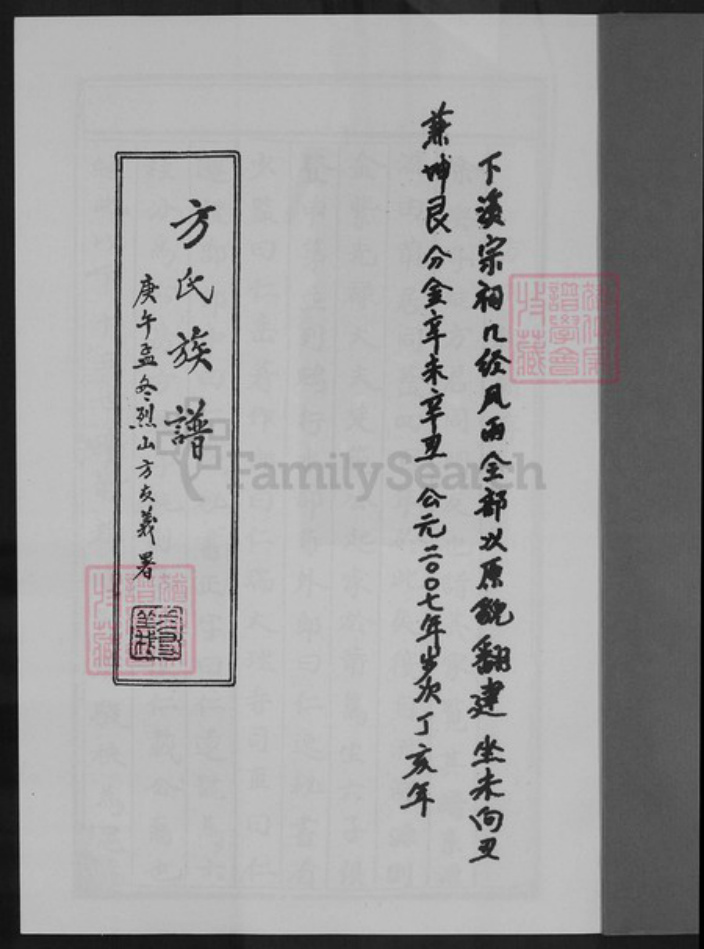 下淡宗祠几经风雨全部以原貌翻建 坐未向丑
兼坤艮分金辛未辛丑 公元二〇〇七年岁次丁亥年
方氏族譜
庚午孟冬烈山方友義署
譜學會
收藏
FamilySearch